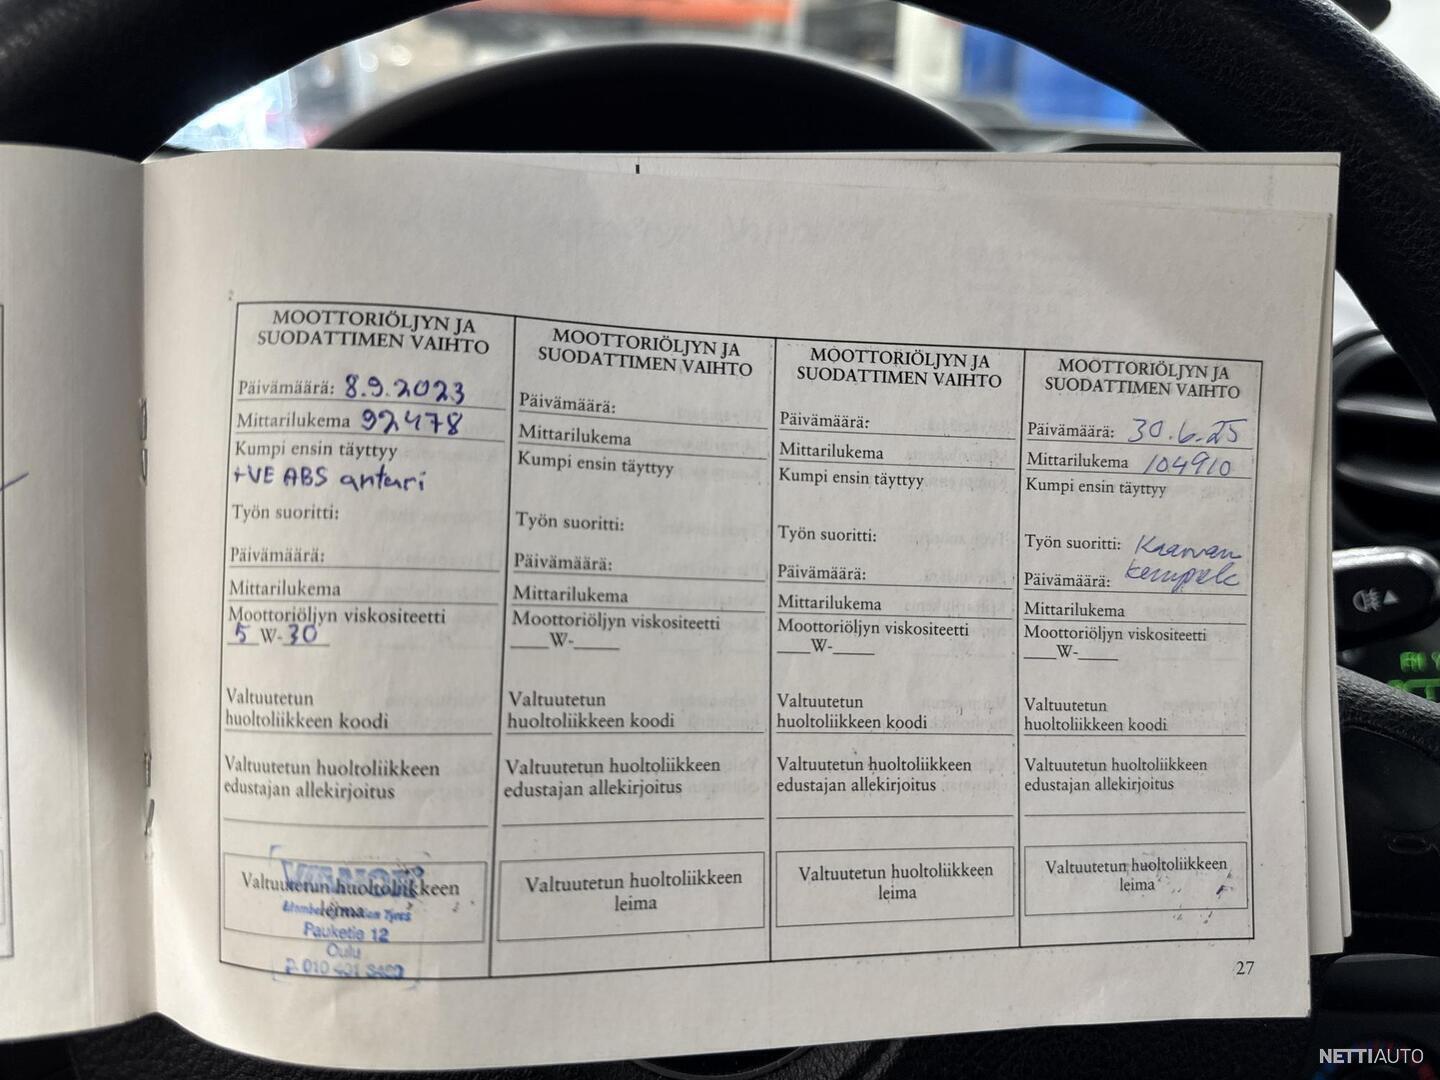 MOOTTORIÖLJYN JA
SUODATTIMEN VAIHTO
Päivämäärä: 8.9.2023
Mittarilukema 92478
Kumpi ensin täyttyy
+VE ABS anturi
Työn suoritti:
Päivämäärä:
Mittarilukema
Moottoriöljyn viskositeetti
5 W-30
Valtuutetun
huoltoliikkeen koodi
Valtuutetun huoltoliikkeen
edustajan allekirjoitus
Valtuutetun huoltoliikkeen
leima
Pauketie 12
Oulu
MOOTTORIÖLJYN JA
SUODATTIMEN VAIHTO
Päivämäärä:
Mittarilukema
Kumpi ensin täyttyy
Työn suoritti:
Päivämäärä:
Mittarilukema
Moottoriöljyn viskositeetti
___W-_____
Valtuutetun
huoltoliikkeen koodi
Valtuutetun huoltoliikkeen
edustajan allekirjoitus
Valtuutetun huoltoliikkeen
leima
MOOTTORIÖLJYN JA
SUODATTIMEN VAIHTO
Päivämäärä:
Mittarilukema
Kumpi ensin täyttyy
Työn suoritti:
Päivämäärä:
Mittarilukema
Moottoriöljyn viskositeetti
___W-_____
Valtuutetun
huoltoliikkeen koodi
Valtuutetun huoltoliikkeen
edustajan allekirjoitus
Valtuutetun huoltoliikkeen
leima
MOOTTORIÖLJYN JA
SUODATTIMEN VAIHTO
Päivämäärä: 30.6.25
Mittarilukema 104910
Kumpi ensin täyttyy
Työn suoritti:
Päivämäärä:
Mittarilukema
Moottoriöljyn viskositeetti
___W-_____
Valtuutetun
huoltoliikkeen koodi
Valtuutetun huoltoliikkeen
edustajan allekirjoitus
Valtuutetun huoltoliikkeen
leima
27
NETTIAUTO